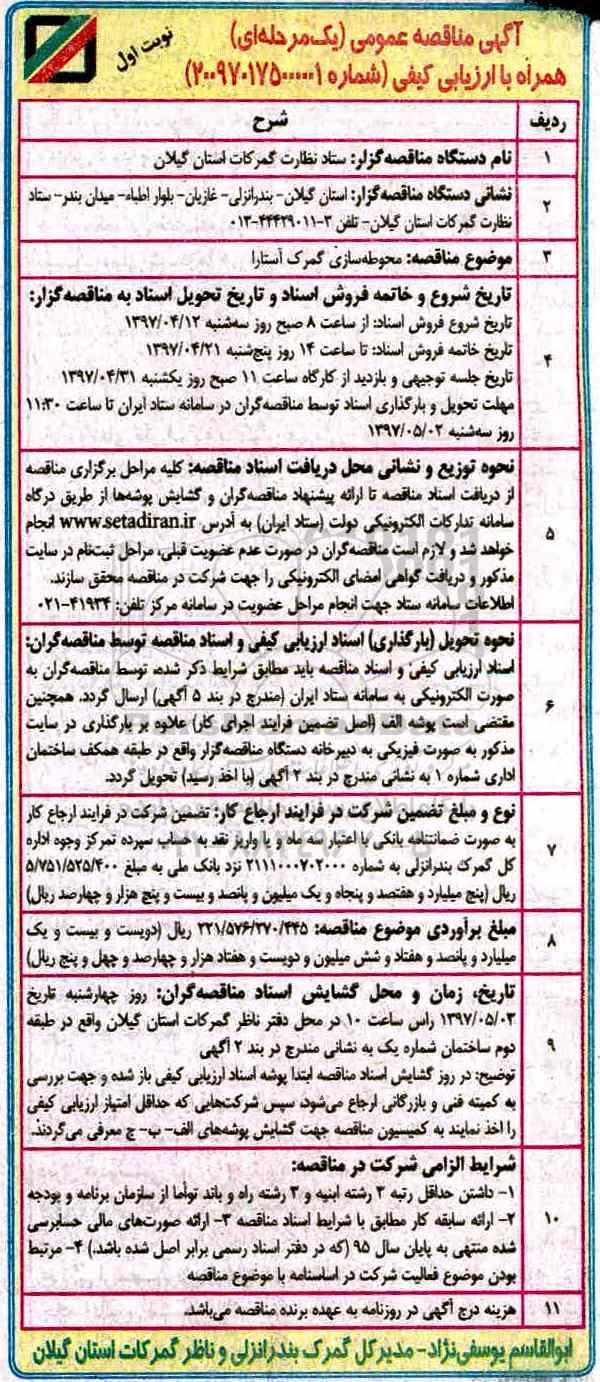 آگهی مناقصه عمومی (یک‌مرحله‌ای)
همراه با ارزیابی کیفی (شماره ۲۰۰۹۷۰۱۷۵۰۰۰۰۰۱)
نوبت اول
ردیف شرح
۱ نام دستگاه مناقصه‌گزار: ستاد نظارت گمرکات استان گیلان
۲ نشانی دستگاه مناقصه‌گزار: استان گیلان- بندرانزلی- غازیان- بلوار اطباء- میدان بندر- ستاد
نظارت گمرکات استان گیلان- تلفن ۳-۴۴۴۲۹۰۱۱-۰۱۳
۳ موضوع مناقصه: محوطه‌سازی گمرک آستارا
۴ تاریخ شروع و خاتمه فروش اسناد و تاریخ تحویل اسناد به مناقصه‌گزار:
تاریخ شروع فروش اسناد: از ساعت ۸ صبح روز سه‌شنبه ۱۳۹۷/۰۴/۱۲
تاریخ خاتمه فروش اسناد: تا ساعت ۱۴ روز پنج‌شنبه ۱۳۹۷/۰۴/۲۱
تاریخ جلسه توجیهی و بازدید از کارگاه ساعت ۱۱ صبح روز یکشنبه ۱۳۹۷/۰۴/۳۱
مهلت تحویل و بارگذاری اسناد توسط مناقصه‌گران در سامانه ستاد ایران تا ساعت ۱۱:۳۰
روز سه‌شنبه ۱۳۹۷/۰۵/۰۲
۵ نحوه توزیع و نشانی محل دریافت اسناد مناقصه: کلیه مراحل برگزاری مناقصه
از دریافت اسناد مناقصه تا ارائه پیشنهاد مناقصه‌گران و گشایش پوشه‌ها از طریق درگاه
سامانه تدارکات الکترونیکی دولت (ستاد ایران) به آدرس www.setadiran.ir انجام
خواهد شد و لازم است مناقصه‌گران در صورت عدم عضویت قبلی، مراحل ثبت‌نام در سایت
مذکور و دریافت گواهی امضای الکترونیکی را جهت شرکت در مناقصه محقق سازند.
اطلاعات سامانه ستاد جهت انجام مراحل عضویت در سامانه مرکز تلفن: ۴۱۹۳۴-۰۲۱
۶ نحوه تحویل (بارگذاری) اسناد ارزیابی کیفی و اسناد مناقصه توسط مناقصه‌گران:
اسناد ارزیابی کیفی و اسناد مناقصه باید مطابق شرایط ذکر شده، توسط مناقصه‌گران به
صورت الکترونیکی به سامانه ستاد ایران (مندرج در بند ۵ آگهی) ارسال گردد. همچنین
مقتضی است پوشه الف (اصل تضمین فرایند اجرای کار) علاوه بر بارگذاری در سایت
مذکور به صورت فیزیکی به دبیرخانه دستگاه مناقصه‌گزار واقع در طبقه همکف ساختمان
اداری شماره ۱ به نشانی مندرج در بند ۲ آگهی (با اخذ رسید) تحویل گردد.
۷ نوع و مبلغ تضمین شرکت در فرایند ارجاع کار: تضمین شرکت در فرایند ارجاع کار
به صورت ضمانتنامه بانکی با اعتبار سه ماه و یا واریز نقد به حساب سپرده تمرکز وجوه اداره
کل گمرک بندرانزلی به شماره ۲۱۱۱۰۰۰۷۰۲۰۰۰ نزد بانک ملی به مبلغ ۵/۷۵۱/۵۲۵/۴۰۰
ریال (پنج میلیارد و هفتصد و پنجاه و یک میلیون و پانصد و بیست و پنج هزار و چهارصد ریال)
۸ مبلغ برآوردی موضوع مناقصه: ۲۲۱/۵۷۶/۲۷۰/۴۴۵ ریال (دویست و بیست و یک
میلیارد و پانصد و هفتاد و شش میلیون و دویست و هفتاد هزار و چهارصد و چهل و پنج ریال)
۹ تاریخ، زمان و محل گشایش اسناد مناقصه‌گران: روز چهارشنبه تاریخ
۱۳۹۷/۰۵/۰۳ راس ساعت ۱۰ در محل دفتر ناظر گمرکات استان گیلان واقع در طبقه
دوم ساختمان شماره یک به نشانی مندرج در بند ۲ آگهی
توضیح: در روز گشایش اسناد مناقصه ابتدا پوشه اسناد ارزیابی کیفی باز شده و جهت بررسی
به کمیته فنی و بازرگانی ارجاع می‌شود، سپس شرکت‌هایی که حداقل امتیاز ارزیابی کیفی
را اخذ نمایند به کمیسیون مناقصه جهت گشایش پوشه‌های الف- ب- ج معرفی می‌گردند.
۱۰ شرایط الزامی شرکت در مناقصه:
۱- داشتن حداقل رتبه ۳ رشته ابنیه و ۳ رشته راه و باند توأما از سازمان برنامه و بودجه
۲- ارائه سابقه کار مطابق با شرایط اسناد مناقصه ۳- ارائه صورت‌های مالی حسابرسی
شده منتهی به پایان سال ۹۵ (که در دفتر اسناد رسمی برابر اصل شده باشد.) ۴- مرتبط
بودن موضوع فعالیت شرکت در اساسنامه با موضوع مناقصه
۱۱ هزینه درج آگهی در روزنامه به عهده برنده مناقصه می‌باشد.
ابوالقاسم یوسفی‌نژاد- مدیرکل گمرک بندرانزلی و ناظر گمرکات استان گیلان